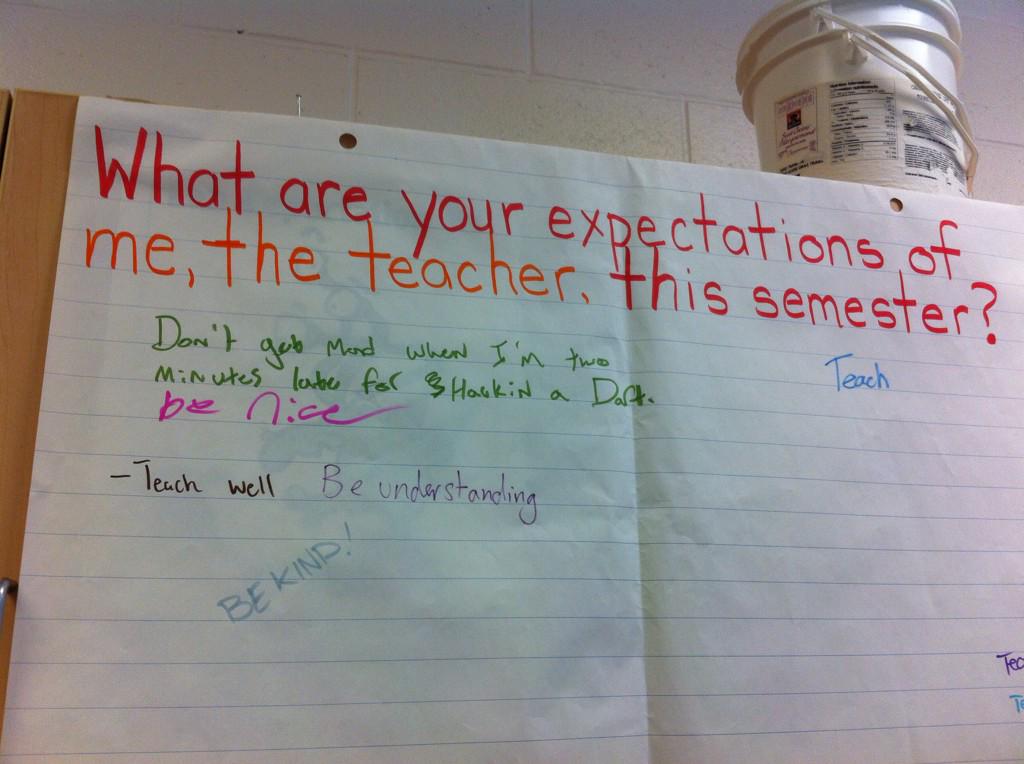 What are your expectations of
me, the teacher, this semester?
Don't get mad when I'm two
minutes late for
Hawkin a Dart.
Teach
be nice
- Teach well
Be understanding
BE KIND!
Tec
Te